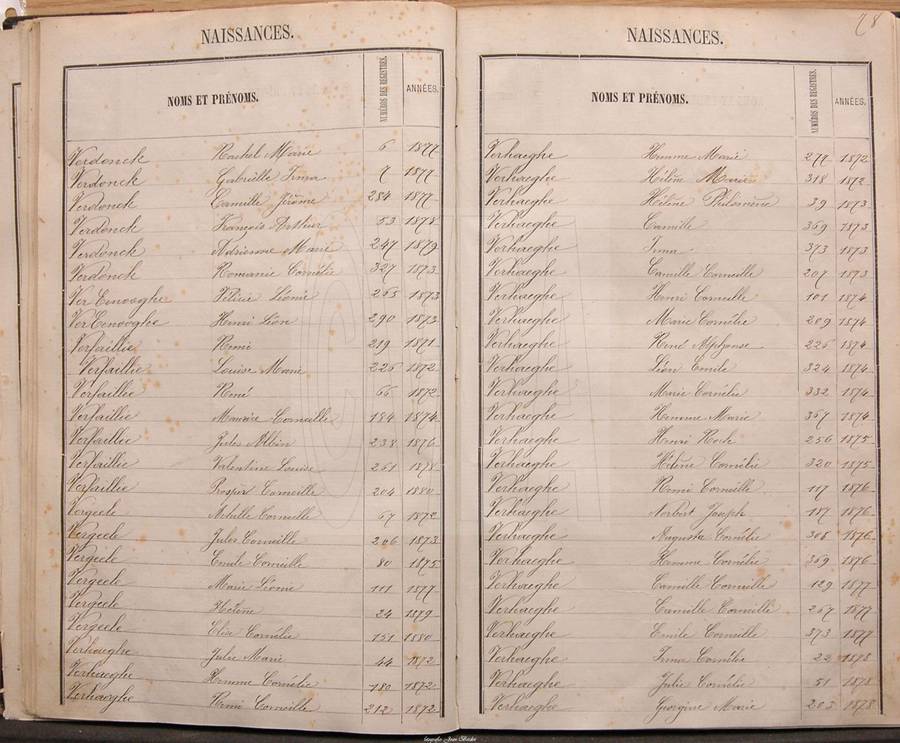 78
NAISSANCES.
NOMS ET PRÉNOMS. NUMÉROS DES REGISTRES. ANNÉES.
Verdonck Rachel Marie 6 1877
Verdonck Gabrielle Irma 7 1877
Verdonck Camille Jérôme 284 1877
Verdonck François Arthur 53 1878
Verdonck Adrienne Marie 247 1879
Verdonck Romanie Cornélie 327 1873
Ver Eenooghe Félicie Léonie 265 1873
Ver Eenooghe Henri Léon 290 1873
Verfaillie Remi 219 1871
Verfaillie Louise Marie 226 1872
Verfaillie René 66 1872
Verfaillie Maurice Corneille 184 1874
Verfaillie Jules Albin 238 1876
Verfaillie Valentine Louise 261 1878
Verfaillie Prosper Corneille 204 1880
Vergeele Achille Corneille 67 1872
Vergeele Jules Corneille 206 1873
Vergeele Emile Corneille 80 1875
Vergeele Marie Léonie 111 1877
Vergeele Hélène 24 1879
Vergeele Elise Cornélie 151 1880
Verhaeghe Julie Marie 44 1872
Verhaeghe Hemme Cornélie 180 1872
Verhaeghe Remi Corneille 212 1872
NAISSANCES.
NOMS ET PRÉNOMS. NUMÉROS DES REGISTRES. ANNÉES.
Verhaeghe Hemme Marie 277 1872
Verhaeghe Hélène Marie 318 1872
Verhaeghe Hélène Philomène 39 1873
Verhaeghe Camille 369 1873
Verhaeghe Irma 373 1873
Verhaeghe Camille Corneille 207 1873
Verhaeghe Henri Corneille 101 1874
Verhaeghe Marie Cornélie 209 1874
Verhaeghe René Alphonse 226 1874
Verhaeghe Léon Emile 324 1874
Verhaeghe Marie Cornélie 332 1874
Verhaeghe Hemme Marie 367 1874
Verhaeghe Henri Roch 256 1875
Verhaeghe Hélène Cornélie 320 1875
Verhaeghe Remi Corneille 117 1876
Verhaeghe Norbert Joseph 187 1876
Verhaeghe Augusta Cornélie 308 1876
Verhaeghe Hemme Cornélie 369 1876
Verhaeghe Camille Corneille 129 1877
Verhaeghe Camille Corneille 267 1877
Verhaeghe Emile Corneille 373 1877
Verhaeghe Irma Cornélie 22 1878
Verhaeghe Julie Cornélie 51 1878
Verhaeghe Georgine Marie 203 1878